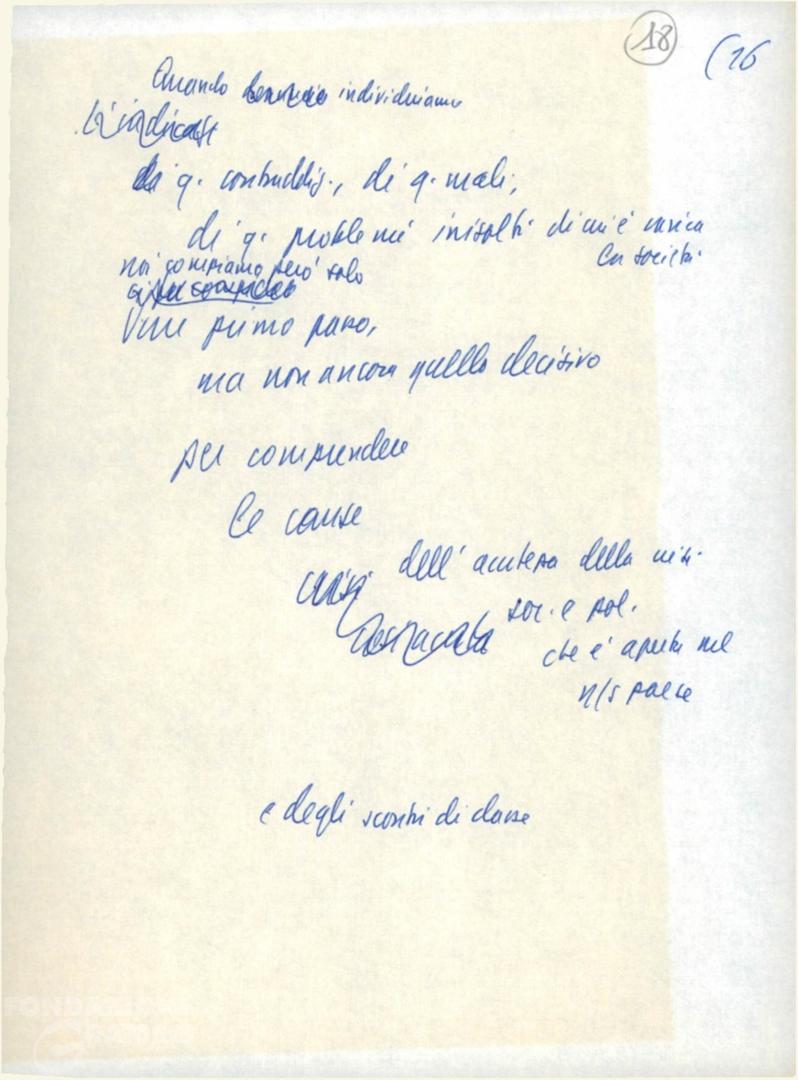 18 (16
Quando individuiamo
L'indicare
di q. contraddiz., di q. mali,
di q. problemi irrisolti di cui è carica
la società.
noi compiamo però solo
Un primo passo,
ma non ancora quello decisivo
per comprendere
le cause
crisi dell'acutezza della crisi
soc. e pol.
che è aperta nel
n/s paese
e degli scontri di classe
FONDAZIONE